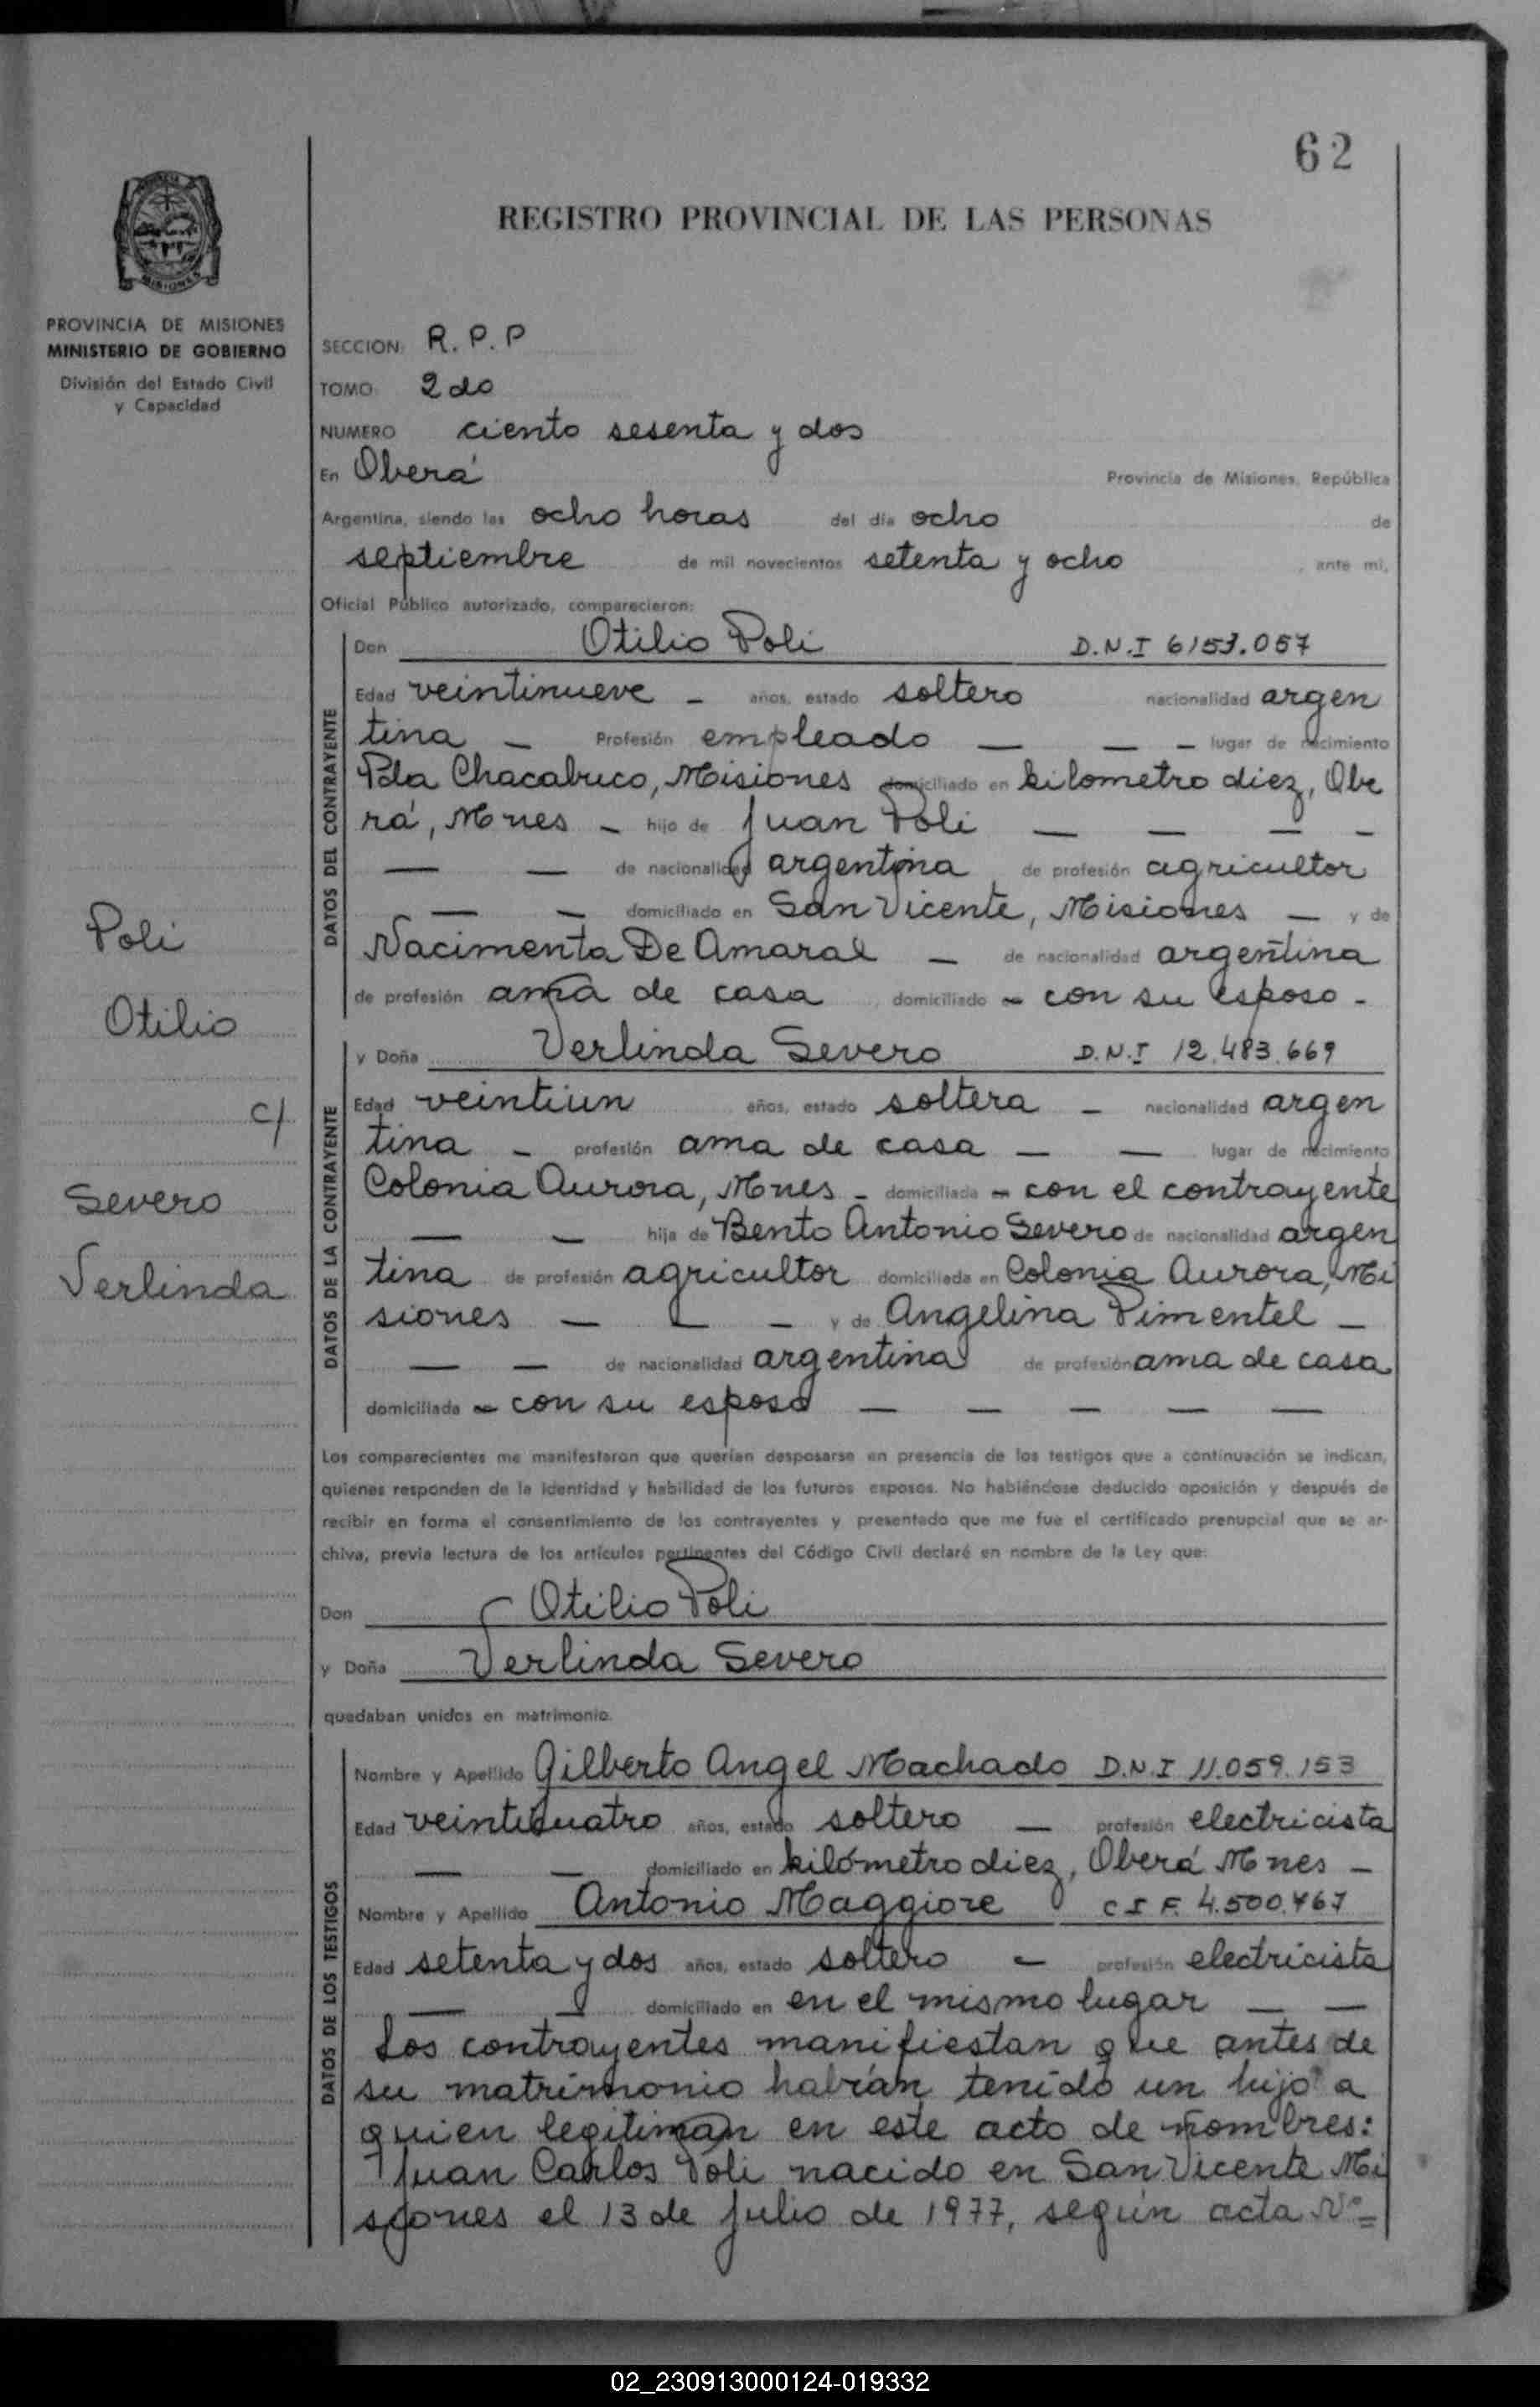 62
REGISTRO PROVINCIAL DE LAS PERSONAS
MISIONES
PROVINCIA DE MISIONES
MINISTERIO DE GOBIERNO
División del Estado Civil
y Capacidad
SECCION: R. P. P
TOMO: 2do
NUMERO ciento sesenta y dos
En Oberá Provincia de Misiones, República
Argentina, siendo las ocho horas del día ocho de
septiembre de mil novecientos setenta y ocho, ante mi,
Oficial Público autorizado, comparecieron:
DATOS DEL CONTRAYENTE
Don Otilio Poli D.N.I 6153.057
Edad veintinueve - años, estado soltero nacionalidad argen
tina - Profesión empleado — — - lugar de nacimiento
Pda Chacabuco, Misiones domiciliado en kilometro diez, Obe
rá, Mnes - hijo de Juan Poli — — — -
— — de nacionalidad argentina de profesión agricultor
— - domiciliado en San Vicente, Misiones — y de
Nacimenta De Amaral — de nacionalidad argentina
de profesión ama de casa, domiciliado - con su esposo -
Poli
Otilio
c/
Severo
Verlinda
DATOS DE LA CONTRAYENTE
y Doña Verlinda Severo D.N.I 12.483.669
Edad veintiun años, estado soltera - nacionalidad argen
tina - profesión ama de casa — — lugar de nacimiento
Colonia Aurora, Mnes - domiciliada - con el contrayente
— — hija de Bento Antonio Severo de nacionalidad argen
tina de profesión agricultor domiciliado en Colonia Aurora, Mi
siones — — - y de Angelina Pimentel -
— — de nacionalidad argentina de profesión ama de casa
domiciliada - con su esposo — — — — —
Los comparecientes me manifestaron que querían desposarse en presencia de los testigos que a continuación se indican,
quienes responden de la identidad y habilidad de los futuros esposos. No habiéndose deducido oposición y después de
recibir en forma el consentimiento de los contrayentes y presentado que me fue el certificado prenupcial que se ar-
chiva, previa lectura de los artículos pertinentes del Código Civil declaré en nombre de la Ley que:
Don Otilio Poli
y Doña Verlinda Severo
quedaban unidos en matrimonio.
DATOS DE LOS TESTIGOS
Nombre y Apellido Gilberto Angel Machado D.N.I 11.059.153
Edad veinticuatro años, estado soltero — profesión electricista
— — domiciliado en kilómetro diez, Oberá Mnes -
Nombre y Apellido Antonio Maggiore C I F. 4.500.467
Edad setenta y dos años, estado soltero - profesión electricista
— — domiciliado en en el mismo lugar — —
Los contrayentes manifiestan que antes de
su matrimonio habían tenido un hijo a
quien legitiman en este acto de nombres:
Juan Carlos Poli nacido en San Vicente Mi
siones el 13 de Julio de 1977, según acta Nº
02_230913000124-019332